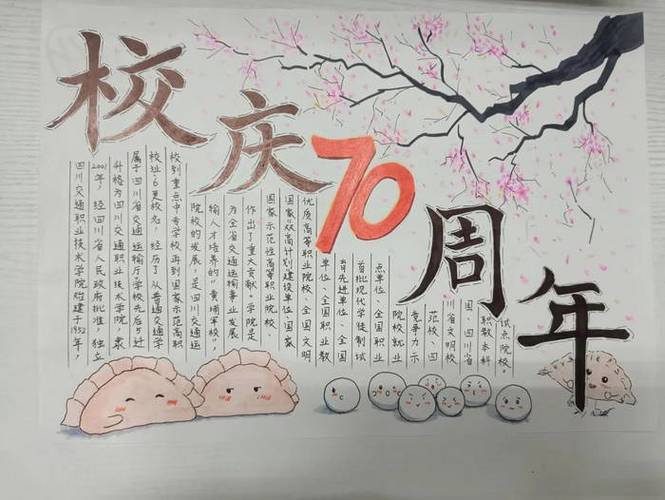 校庆70周年
四川交通职业技术学院始建于1952年，
2001年，经四川省人民政府批准，独立
升格为四川交通职业技术学院，隶
属于四川省交通运输厅。学校先后5迁
校址、6更校名，经历了从普通交通学
校到重点中专学校再到国家示范高职
院校的发展，是四川交通运
输人才培养的“黄埔军校”，
为全省交通运输事业发展
作出了重大贡献。学院是
国家示范性高等职业院校、
国家“双高计划”建设单位、国家
优质高等职业院校、全国文明
单位、全国职业教
育先进单位、全国
首批现代学徒制试
点单位、全国职业
院校就业
竞争力示
范校、四
川省文明校
园、四川省
职教本科
试点院校。